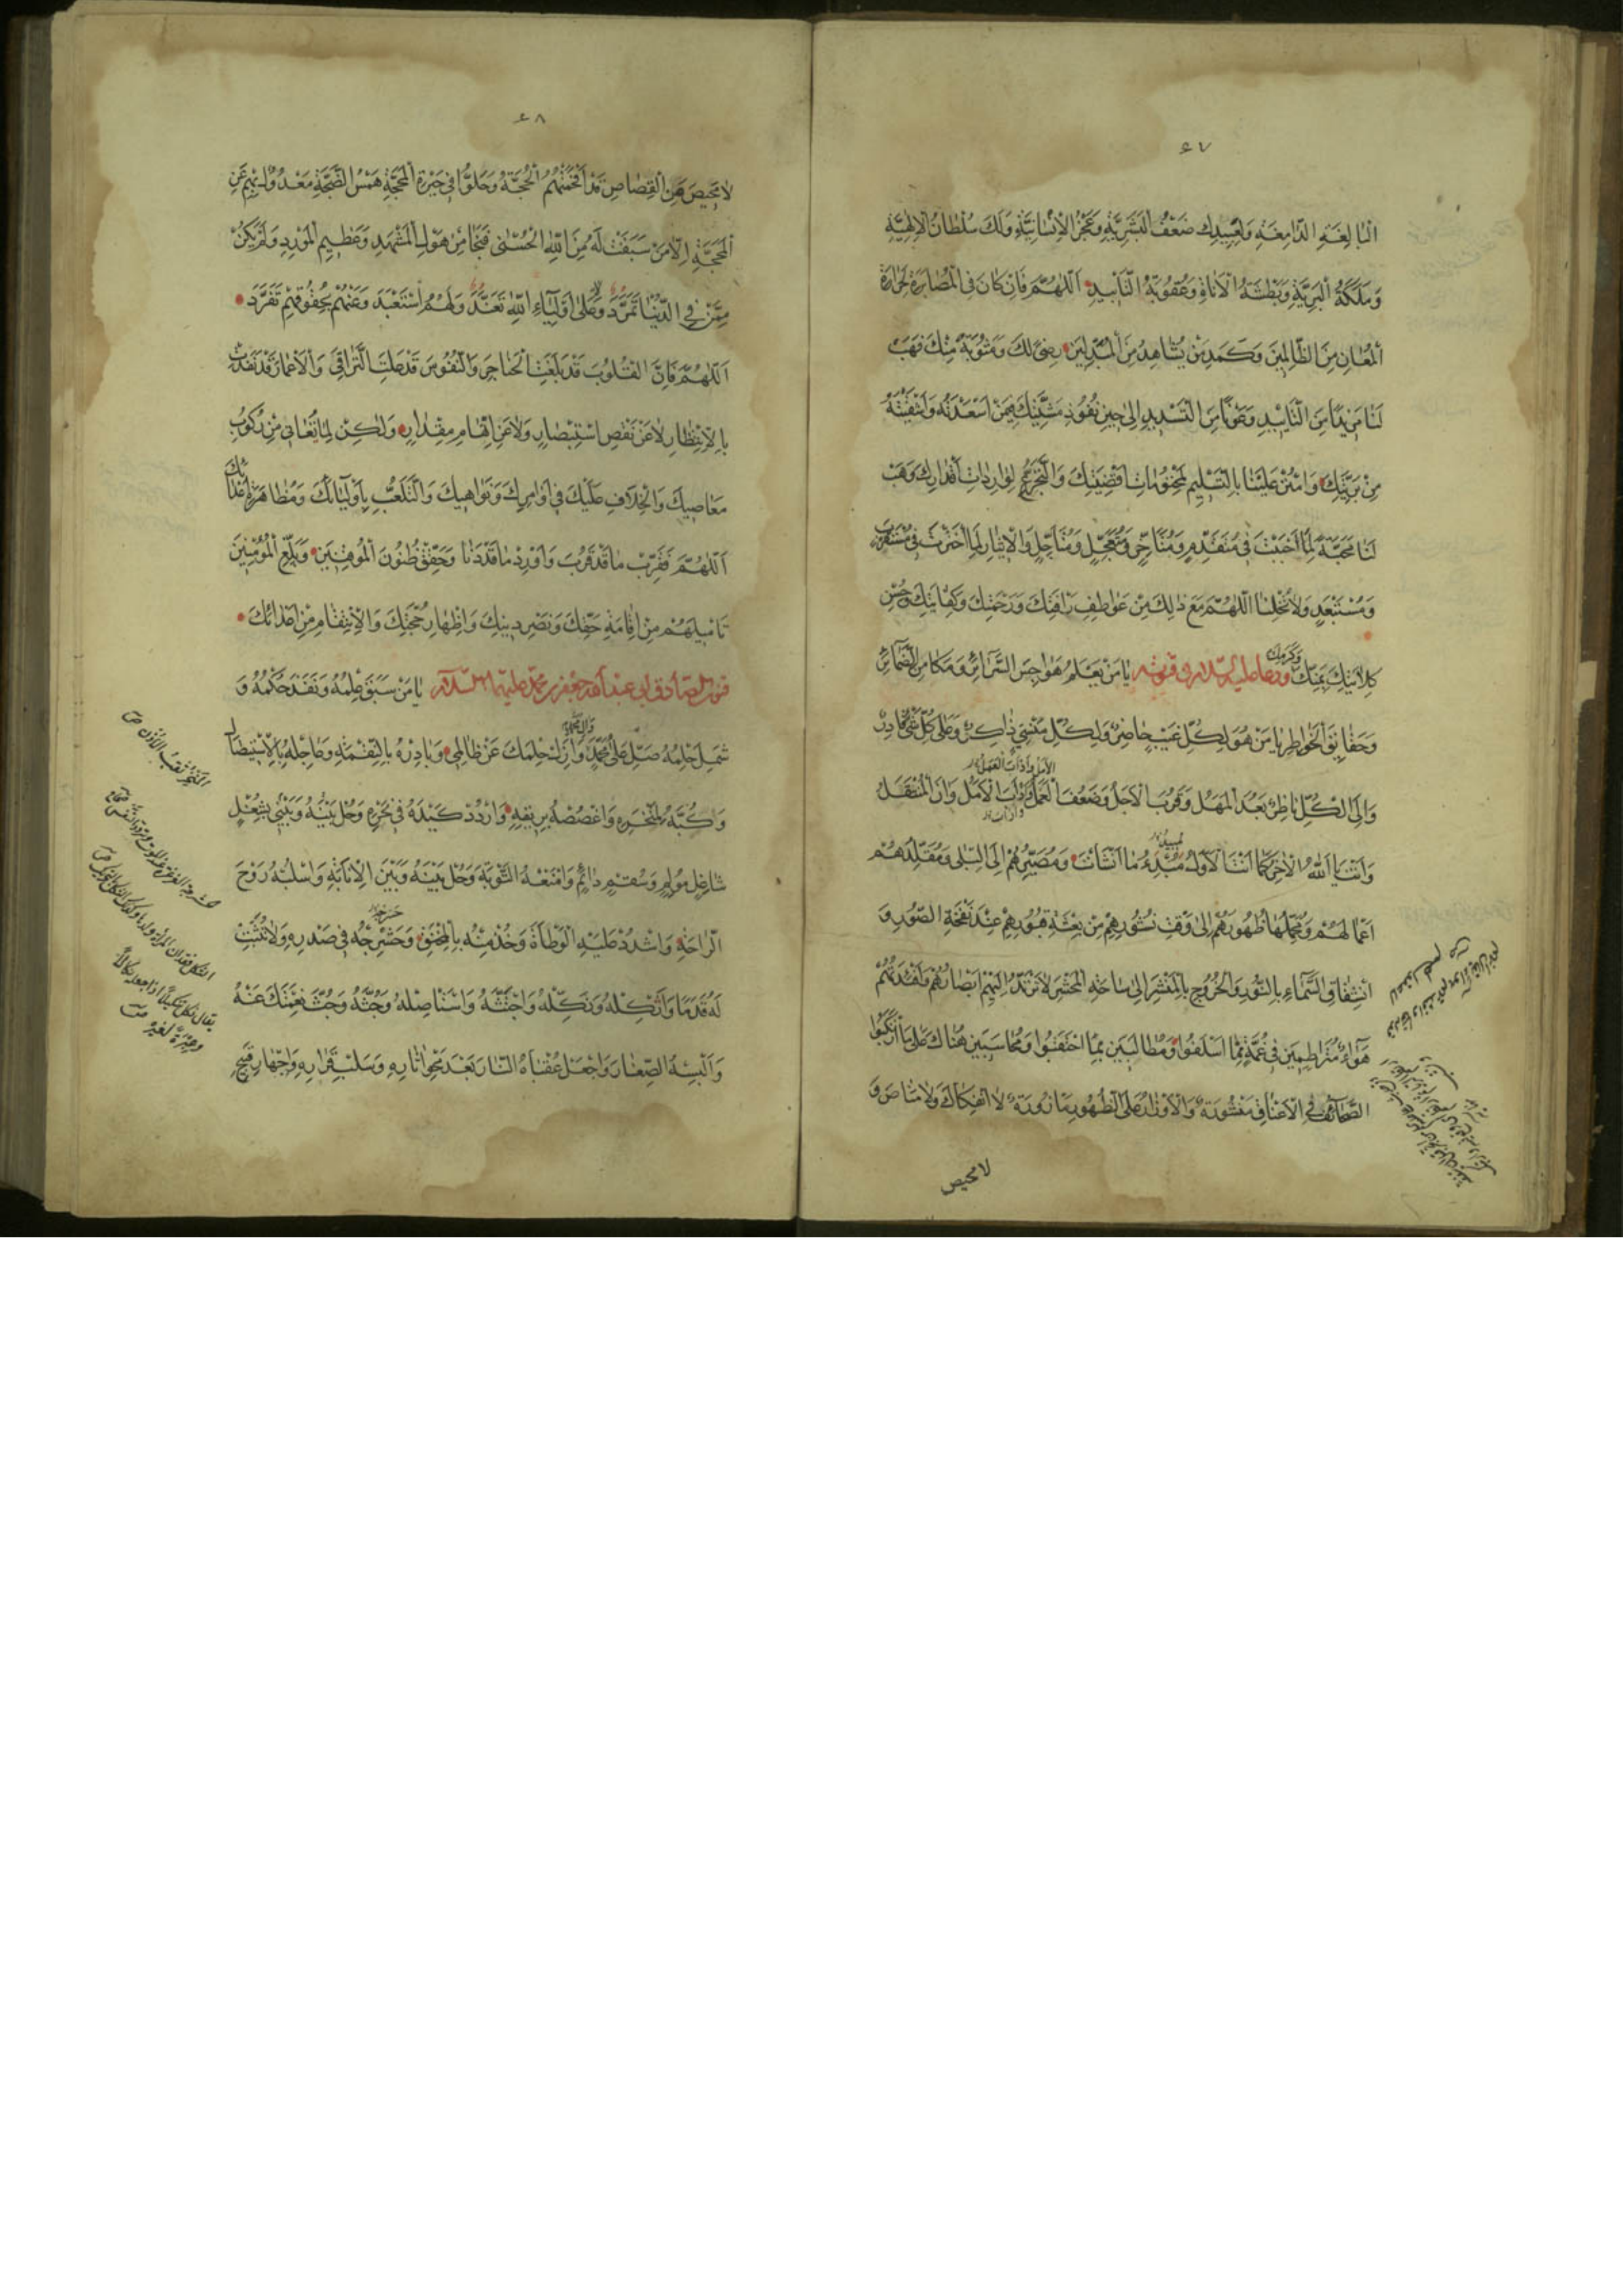 ٤٧
البالغة الدامغة ولعبيدك ضَعْفُ البَشَرِيَّةِ وَعَجْزُ الإنْسانِيَّةِ وَلَكَ سُلْطانُ الإلٰهِيَّةِ
وَمَلَكَةُ البَرِيَّةِ وَبَطْشَةُ الأناةِ وَعُقُوبَةُ التَّأبيدِ اَللّٰهُمَّ فَاِنْ كانَ فى المُصابَرَةِ لِحَرارَةِ
المُعانِ مِنَ الظّالِمينَ وَكَمَدِ مَنْ يُشاهِدُ مِنَ المُبَدِّلينَ رِضىً لَكَ وَمَثُوبَةٌ مِنْكَ فَهَبْ
لَنا مَزيدًا مِنَ التَّأْييدِ وَعَوْنًا مِنَ التَّسْديدِ اِلى حينِ نُفُوذِ مَشِيَّتِكَ فيمَنْ اَسْعَدْتَهُ وَاَشْقَيْتَهُ
مِنْ بَرِيَّتِكَ وَامْنُنْ عَلَيْنا بِالتَّسْليمِ لِمَحْتُوماتِ اَقْضِيَتِكَ وَالتَّجَرُّعِ لِوارِداتِ اَقْدارِكَ وَهَبْ
لَنا مَحَبَّةً لِما اَحْبَبْتَ فى مُتَقَدِّمٍ وَمُتَاَخِّرٍ وَمُتَعَجِّلٍ وَمُتَاَجِّلٍ وَالإيثارَ لِمَا اخْتَرْتَ فى مُسْتَقْرَبٍ
وَمُسْتَبْعَدٍ وَلا تُخْلِنا اللّٰهُمَّ مَعَ ذلِكَ مِنْ عَواطِفِ رَأْفَتِكَ وَرَحْمَتِكَ وَكِفايَتِكَ وَحُسْنِ
كِلاءَتِكَ بِمَنِّكَ وَكَرَمِكَ ودعا عليه السلام فى قنوته يا مَنْ يَعْلَمُ هَواجِسَ السَّرائِرِ وَمَكامِنَ الضَّمائِرِ
وَحَقائِقَ الخَواطِرِ يا مَنْ هُوَ لِكُلِّ غَيْبٍ حاضِرٌ وَلِكُلِّ مَنْسِىٍّ ذاكِرٌ وَعَلى كُلِّ شَىْءٍ قادِرٌ
وَاِلَى الكُلِّ ناظِرٌ بَعُدَ المَهَلُ وَقَرُبَ الأجَلُ وَضَعُفَ العَمَلُ وَاَرْأَبَ الأمَلُ وَآنَ المُنْتَقَلُ
وَاَنْتَ يا اَللّٰهُ الآخِرُ كَما اَنْتَ الأوَّلُ مُبيدُ ما اَنْشَأْتَ وَمُصَيِّرُهُمْ اِلَى البِلى وَمُقَلِّدُهُمْ
اَعْمالَهُمْ وَمُحَمِّلُها ظُهُورَهُمْ اِلى وَقْتِ نُشُورِهِمْ مِنْ بِعْثَةِ قُبُورِهِمْ عِنْدَ نَفْخَةِ الصُّورِ وَ
انْشِقاقِ السَّماءِ بِالنُّورِ وَالخُرُوجِ بِالمَنْشَرِ اِلى ساحَةِ المَحْشَرِ لا تَرْتَدُّ اِلَيْهِمْ اَبْصارُهُمْ وَاَفْئِدَتُهُمْ
هَواءٌ مُتَراطِمينَ فى غُمَّةٍ مِمّا اَسْلَفُوا وَمُطالَبينَ بِمَا احْتَقَبُوا وَمُحاسَبينَ هُناكَ عَلى مَا ارْتَكَبُوا
الصَّحائِفُ فِى الأعْناقِ مَنْشُورَةٌ وَالأوْزارُ عَلَى الظُّهُورِ مَأْزُورَةٌ لَا انْفِكاكَ وَلا مَناصَ وَ
لا محيص
٤٨
لا مَحيصَ مِنَ القِصاصِ قَدْ اَفْحَمَتْهُمُ الحُجَّةُ وَحَلُّوا فى حَيْرَةِ المَحَجَّةِ هَمْسُ الضَّجَّةِ مَعْدُولٌ بِهِمْ عَنِ
المَحَجَّةِ اِلّا مَنْ سَبَقَتْ لَهُ مِنَ اللهِ الحُسْنى فَنَجا مِنْ هَوْلِ المَشْهَدِ وَعَظيمِ المَوْرِدِ وَلَمْ يَكُنْ
مِمَّنْ فِى الدُّنْيا تَمَرَّدَ وَلا عَلى اَوْلِياءِ اللهِ تَعَنَّدَ وَلَهُمُ اسْتَعْبَدَ وَعَنْهُمْ بِحُقُوقِهِمْ تَفَرَّدَ
اَللّٰهُمَّ فَاِنَّ القُلُوبَ قَدْ بَلَغَتِ الحَناجِرَ وَالنُّفُوسَ قَدْ عَلَتِ التَّراقِىَ وَالأعْمارَ قَدْ نَفِدَتْ
بِالاِنْتِظارِ لا عَنْ نَقْصِ اسْتِبْصارٍ وَلا عَنِ اتِّهامِ مِقْدارٍ وَلكِنْ لِما تُعانى مِنْ رُكُوبِ
مَعاصيكَ وَالخِلافِ عَلَيْكَ فى اَوامِرِكَ وَنَواهيكَ وَالتَّلَعُّبِ بِاَوْلِيائِكَ وَمُظاهَرَةِ اَعْدائِكَ
اَللّٰهُمَّ فَقَرِّبْ ما قَدْ قَرُبَ وَاَوْرِدْ ما قَدْ دَنا وَحَقِّقْ ظُنُونَ المُوقِنينَ وَبَلِّغِ المُؤْمِنينَ
تَأْميلَهُمْ مِنْ اِقامَةِ حَقِّكَ وَنَصْرِ دينِكَ وَاِظْهارِ حُجَّتِكَ وَالاِنْتِقامِ مِنْ اَعْدائِكَ
قنوت الصادق ابى عبد الله جعفر بن محمد عليهما السلام يا مَنْ سَبَقَ عِلْمُهُ وَنَفَذَ حُكْمُهُ وَ
شَمِلَ حِلْمُهُ صَلِّ عَلى مُحَمَّدٍ وَآلِ مُحَمَّدٍ وَاَزِلْ حِلْمَكَ عَنْ ظالِمى وَبادِرْهُ بِالنَّقِمَةِ وَعاجِلْهُ بِالاِسْتيصالِ
وَكُبَّهُ لِمَنْخَرِهِ وَاغْصُصْهُ بِريقِهِ وَارْدُدْ كَيْدَهُ فى نَحْرِهِ وَحُلْ بَيْنَهُ وَبَيْنى بِشُغْلٍ
شاغِلٍ مُؤْلِمٍ وَسُقْمٍ دائِمٍ وَامْنَعْهُ التَّوْبَةَ وَحُلْ بَيْنَهُ وَبَيْنَ الإنابَةِ وَاسْلُبْهُ رَوْحَ
الرّاحَةِ وَاشْدُدْ عَلَيْهِ الوَطْأَةَ وَخُذْ مِنْهُ بِالمُخَنَّقِ وَحَشْرِجْهُ فى صَدْرِهِ وَلا تُثْبِتْ
لَهُ قَدَمًا وَاَثْكِلْهُ وَنَكِّلْهُ وَاجْتَثَّهُ وَاسْتَأْصِلْهُ وَجُثَّهُ وَجُثَّ نِعْمَتَكَ عَنْهُ
وَاَلْبِسْهُ الصَّغارَ وَاجْعَلْ عُقْباهُ النّارَ بَعْدَ مَحْوِ آثارِهِ وَسَلْبِ قَرارِهِ وَاِجْهارِ قَبيحِ
المنخر ثقب الانف ص